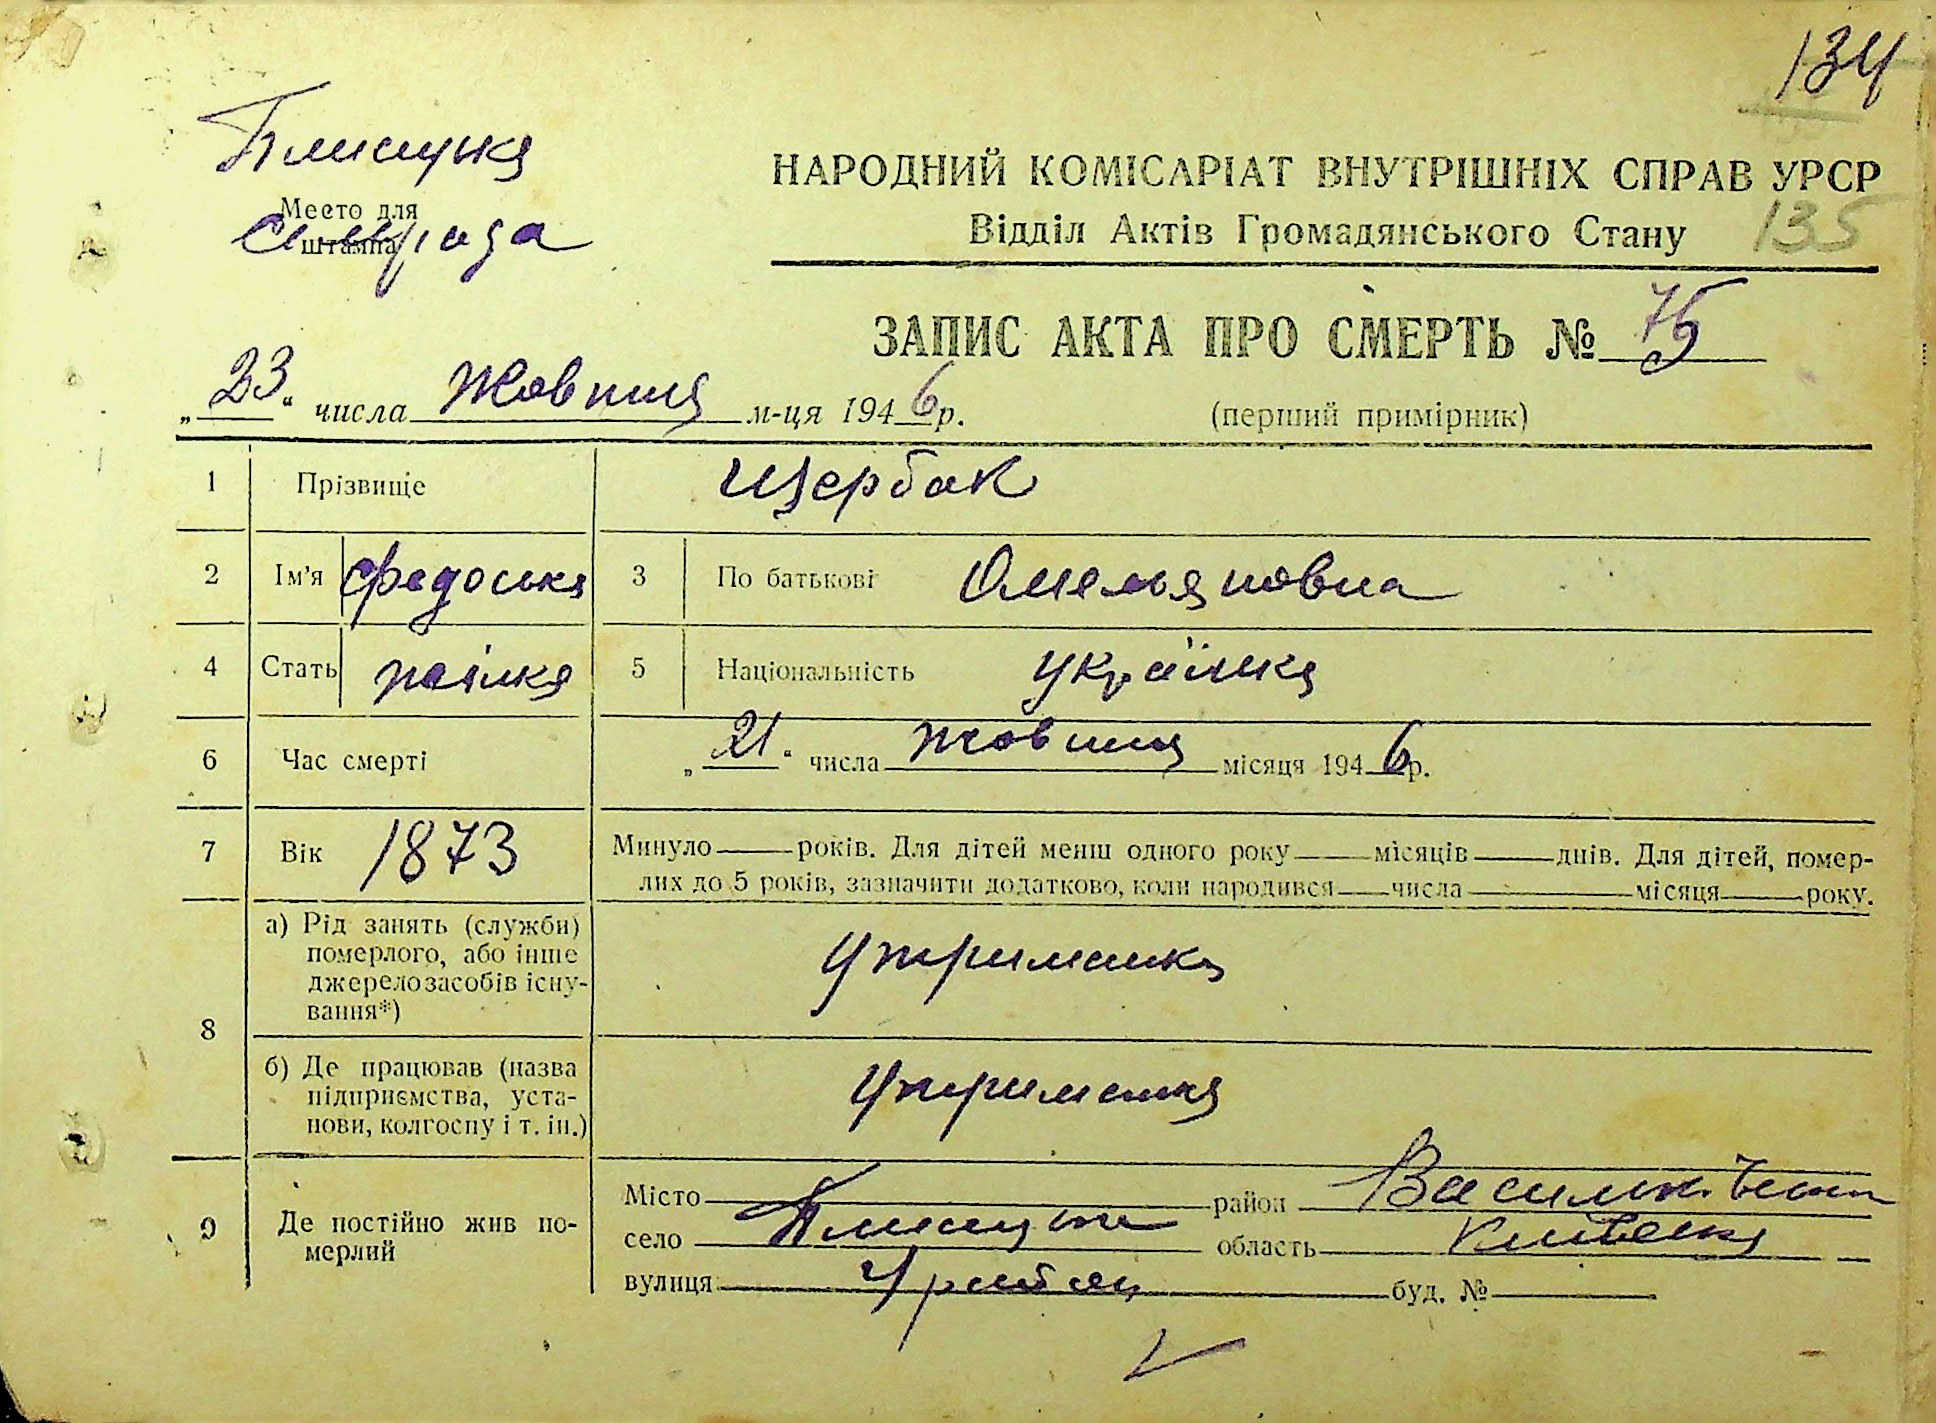 134
Плисецька
Место для
штампа
сільрада
НАРОДНИЙ КОМІСАРІАТ ВНУТРІШНІХ СПРАВ УРСР
Відділ Актів Громадянського Стану
135
ЗАПИС АКТА ПРО СМЕРТЬ № 75
„23“ числа Жовтня м-ця 1946 р.
(перший примірник)
1 Прізвище Щербак
2 Ім'я Федоська 3 По батькові Омельяновна
4 Стать жінка 5 Національність українка
6 Час смерті „21“ числа жовтня місяця 1946 р.
7 Вік 1873 Минуло років. Для дітей менш одного року місяців днів. Для дітей, помер-
лих до 5 років, зазначити додатково, коли народився числа місяця року.
8 а) Рід занять (служби)
померлого, або інше
джерело засобів існу-
вання*)
утриманка
б) Де працював (назва
підприємства, уста-
нови, колгоспу і т. ін.)
утриманка
9 Де постійно жив по-
мерлий
Місто район Васильківськ
село Плисецьке область Київська
вулиця буд. №